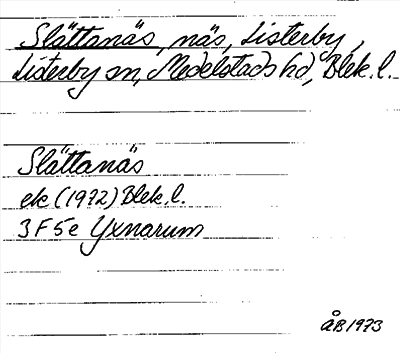 Slättanäs, näs, Listerby,
Listerby sn, Medelstads hd, Blek. l.
Slättanäs
ek (1972) Blek. l.
3 F 5 e Yxnarum
ÅB 1973